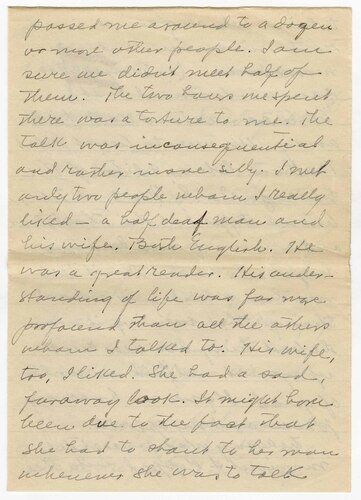 passed me around to a dozen
or more other people. I am
sure we didn't meet half of
them. The two hours we spent
there was a torture to me. The
talk was inconsequential
and rather inane silly. I met
only two people whom I really
liked — a half deaf man and
his wife. Both English. He
was a great reader. His under-
standing of life was far more
profound than all the others
whom I talked to. His wife,
too, I liked. She had a sad,
faraway look. It might have
been due to the fact that
she had to shout to her man
whenever she was to talk